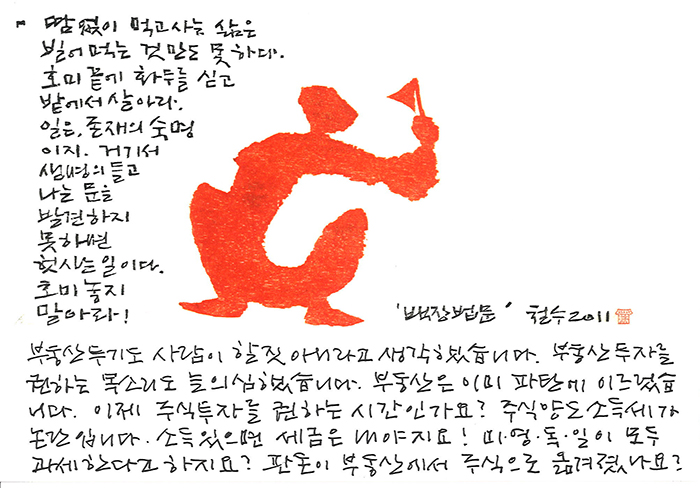 땀 없이 먹고 사는 삶은
빌어 먹는 것만도 못하다.
호미 끝에 화두를 싣고
밭에서 살아라.
일은, 존재의 숙명
이지. 거기서
생명의 들고
나는 문을
발견하지
못하면
헛사는 일이다.
호미 놓지
말아라!
'백장법문' 철수 2011
부동산투기도 사람이 할 짓 아니라고 생각했습니다. 부동산 투자를
권하는 목소리도 늘 의심했습니다. 부동산은 이미 파탄에 이르렀습
니다. 이제 주식투자를 권하는 시간인가요? 주식양도소득세가
논란입니다. 소득 있으면 세금은 내야지요! 미·영·독·일이 모두
과세한다고 하지요? 판돈이 부동산에서 주식으로 옮겨졌나요?